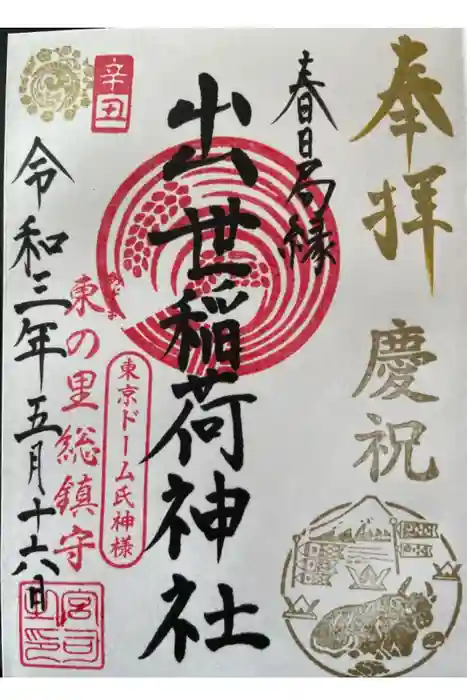 奉拝
慶祝
春日局縁
出世稲荷神社
東京ドーム氏神様
かなすぎ
東の里総鎮守
令和三年五月十六日
辛丑
宮司
之印